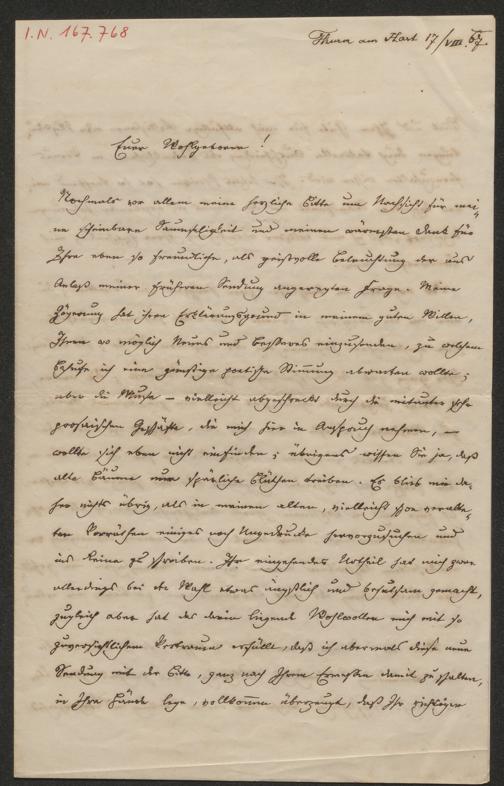 I.N. 167.768
Thurn am Hart 17/VIII. 67.
Euer Wohlgeboren!
Nochmals vor allem meine herzliche Bitte um Nachsicht für mei-
ne scheinbare Saumseligkeit und meinen wärmsten Dank für
Ihre eben so freundliche, als geistvolle Beleuchtung der aus
Anlaß meiner früheren Sendung angeregten Frage. Meine
Zögerung hat ihren Erklärungsgrund in meinem guten Willen,
Ihnen wo möglich Neues und Besseres einzusenden, zu welchem
Behufe ich eine günstige poetische Stimmung abwarten wollte;
aber die Muse – vielleicht abgeschreckt durch die mitunter sehr
prosaischen Geschäfte, die mich hier in Anspruch nehmen, –
wollte sich eben nicht einfinden; übrigens wissen Sie ja, daß
alte Bäume nur spärliche Blüthen treiben. Es blieb mir da-
her nichts übrig, als in meinen alten, vielleicht schon veralte-
ten Vorräthen einiges noch Ungedruckte hervorzusuchen und
ins Reine zu schreiben. Ihr eingehendes Urtheil hat mich zwar
allerdings bei der Wahl etwas ängstlich und behutsam gemacht,
zugleich aber hat das darin liegende Wohlwollen mich mit so
zuversichtlichem Vertrauen erfüllt, daß ich abermals diese neue
Sendung mit der Bitte, ganz nach Ihrem Ermessen damit zu schalten,
in Ihre Hände lege, vollkommen überzeugt, daß Ihr richtiger